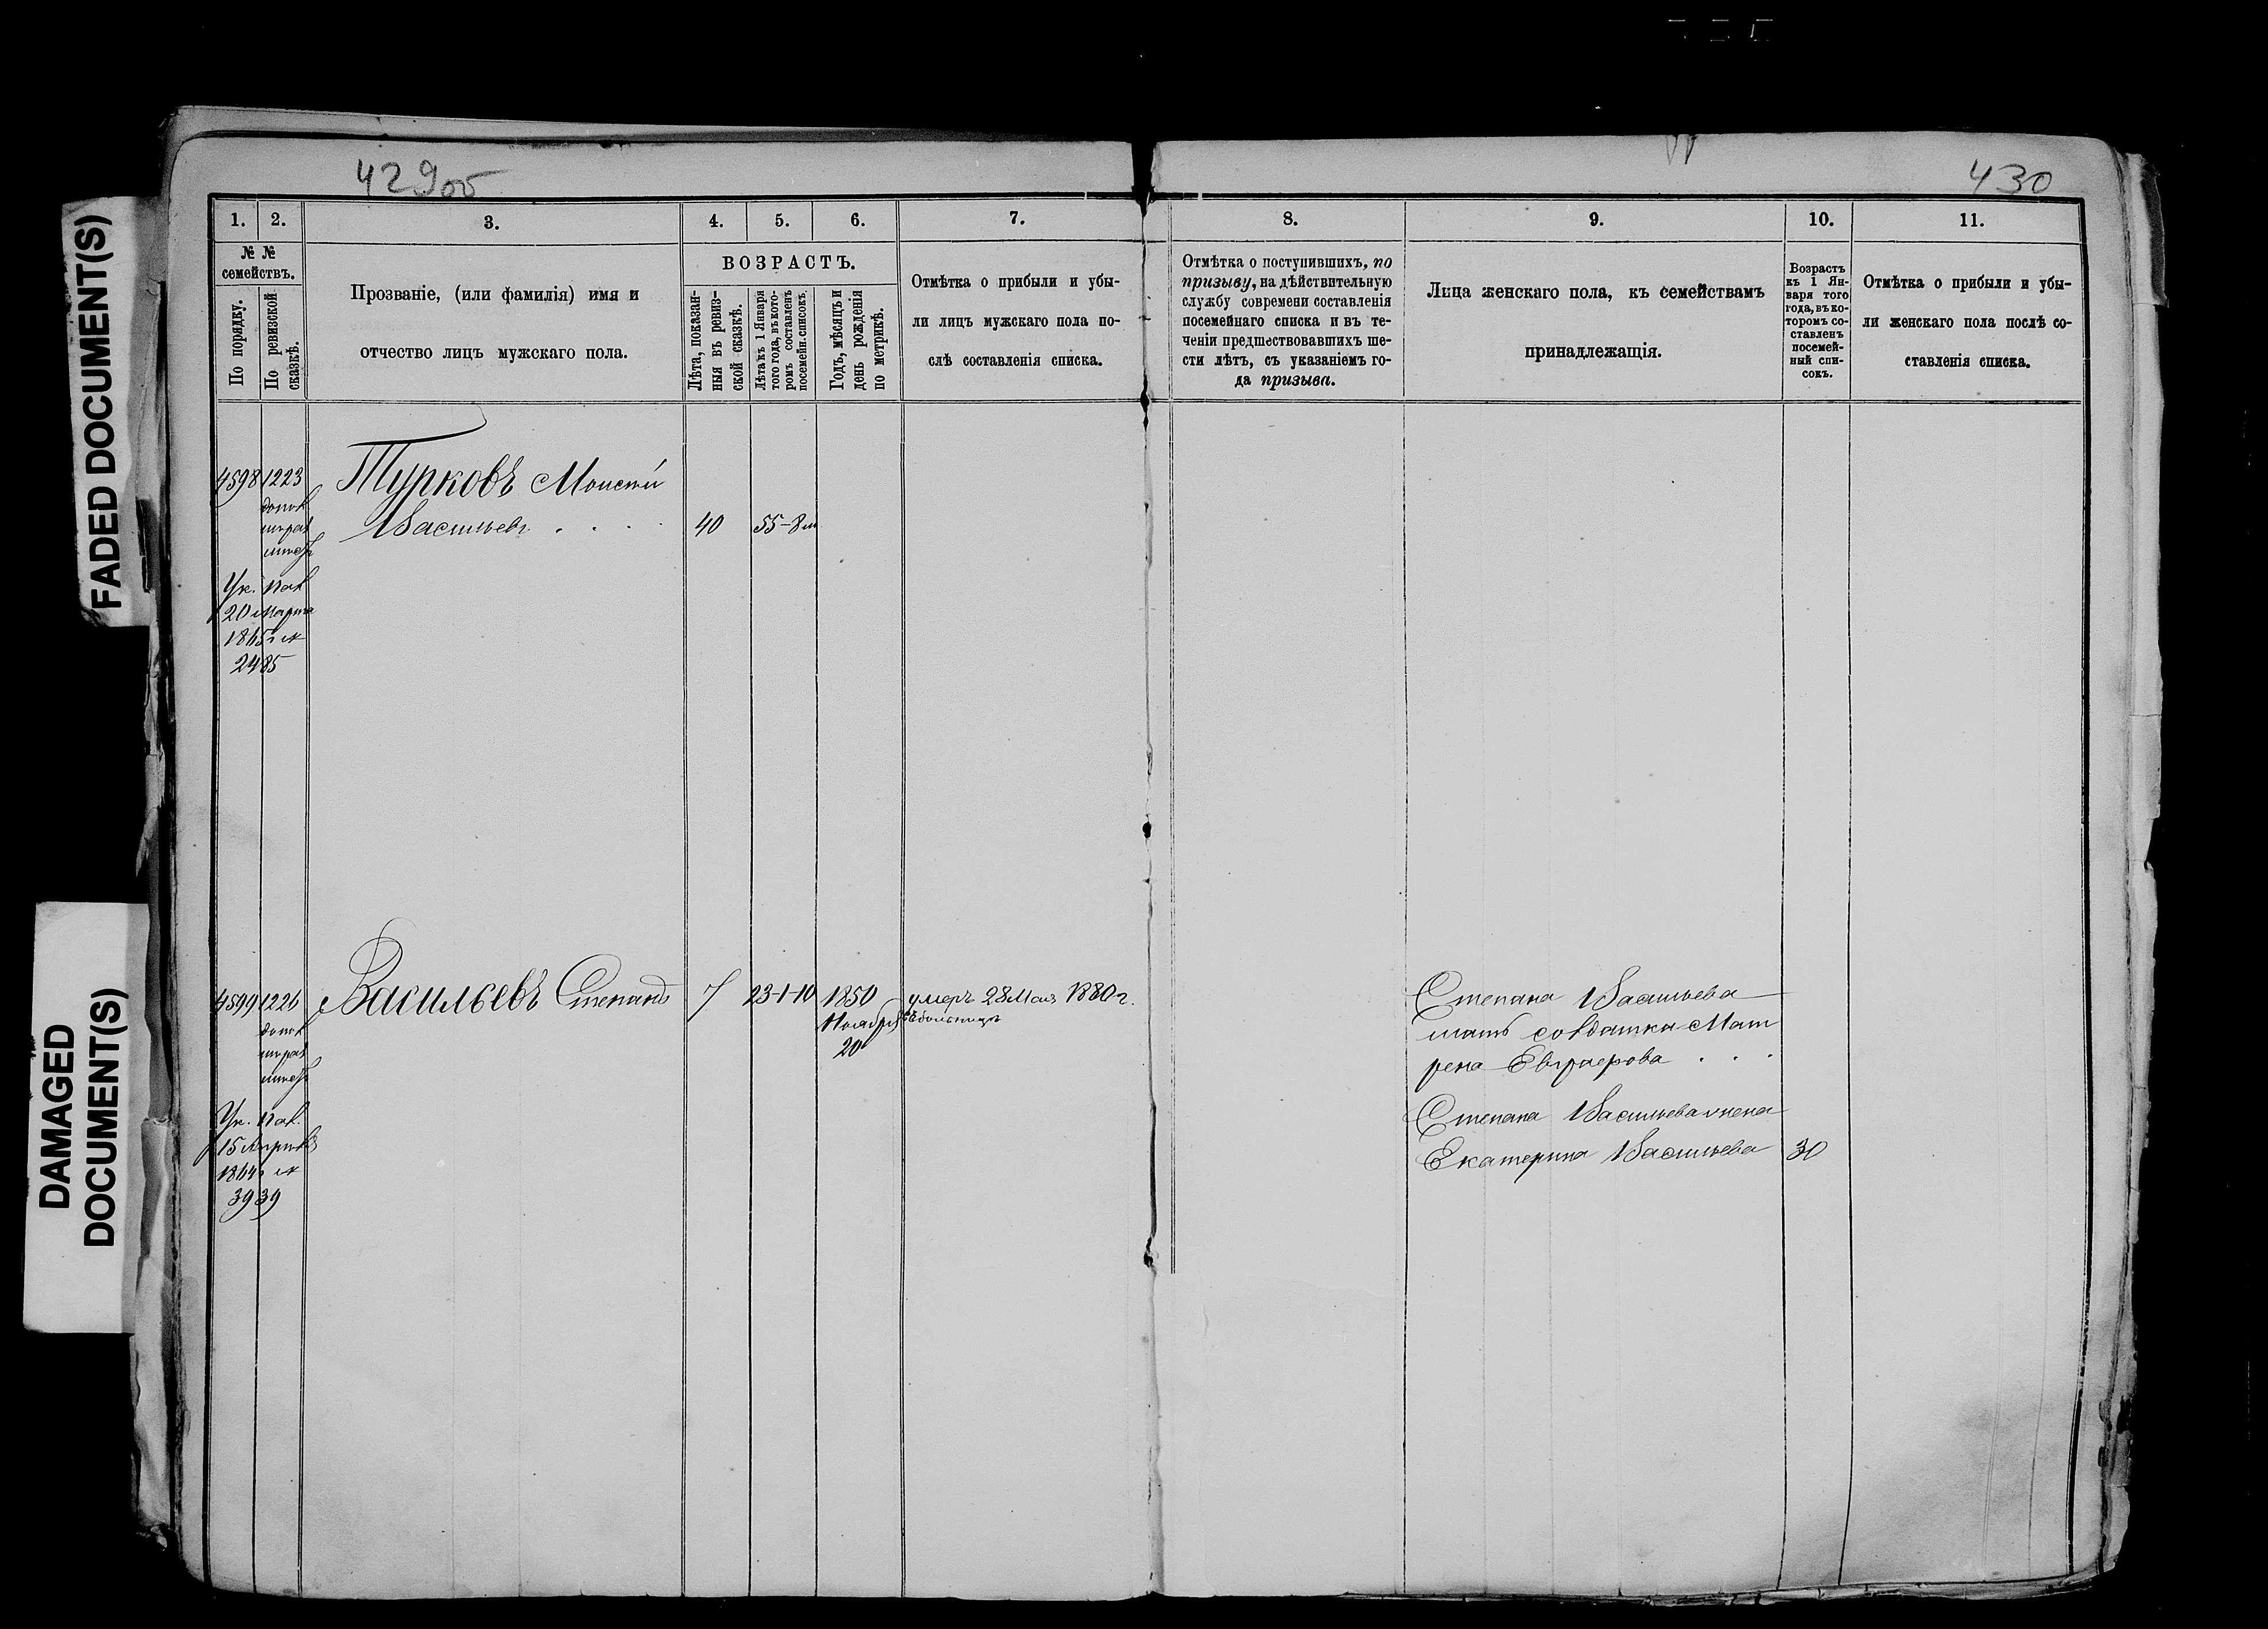 FADED DOCUMENT(S)
DAMAGED
DOCUMENT(S)
429об
430
1. 2. 3. 4. 5. 6. 7. 8. 9. 10. 11.
№ №
семействъ.
По порядку.
По ревизской
сказкѣ.
Прозваніе, (или фамилія) имя и
отчество лицъ мужскаго пола.
ВОЗРАСТЪ.
Лѣта, показан-
ныя въ ревиз-
ской сказкѣ.
Лѣта къ 1 Января
того года, въ кото-
ромъ составленъ
посемейн. списокъ.
Годъ, мѣсяцъ и
день рожденія
по метрикѣ.
Отмѣтка о прибыли и убы-
ли лицъ мужскаго пола по-
слѣ составленія списка.
Отмѣтка о поступившихъ, по
призыву, на дѣйствительную
службу современи составленія
посемейнаго списка и въ те-
ченіи предшествовавшихъ ше-
сти лѣтъ, съ указаніемъ го-
да призыва.
Лица женскаго пола, къ семействамъ
принадлежащія.
Возрастъ
къ 1 Ян-
варя того
года, въ ко-
торомъ со-
ставленъ
посемей-
ный спи-
сокъ.
Отмѣтка о прибыли и убы-
ли женскаго пола послѣ со-
ставленія списка.
4598 1223 Турковъ
допол
Васильевъ 40 55-8м
Ук. Пал
20 Марта
1865г №
2485
4599 1226 Васильевъ Степанъ 7 23-1-10 1850 умеръ 28 Мая 1880 г.
Ноября
20
допол
Ук. Пал.
15 Апрѣля
1864г №
3939
Степана Васильева
мать солдатка Мат
рена
Степана Васильева жена
Екатерина Васильева 30